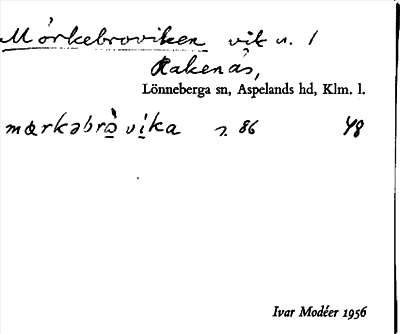 Mörkebroviken vik n. 1
Rakenäs,
Lönneberga sn, Aspelands hd, Klm. l.
mœrkəbrò̱ vi̱ka s. 86 48
Ivar Modéer 1956